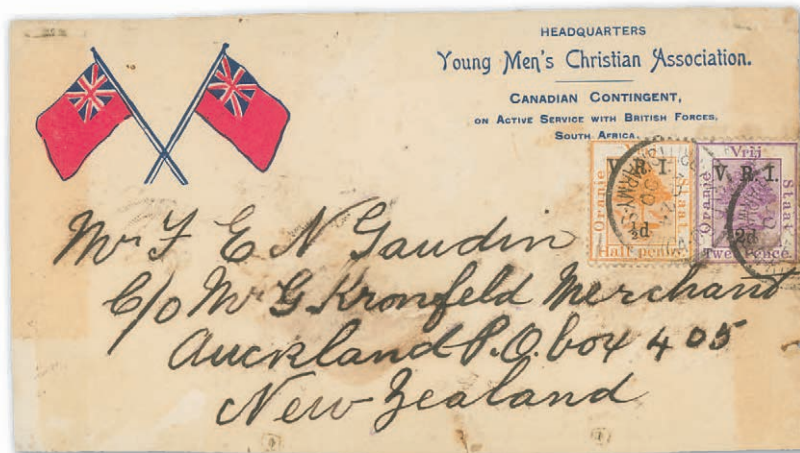 HEADQUARTERS
Young Men's Christian Association.
CANADIAN CONTINGENT,
ON ACTIVE SERVICE WITH BRITISH FORCES,
SOUTH AFRICA.
V. R. I.
Oranje
½d
Half penny
Vrij
V. R. I.
Oranje
Staat
2d
Twee Pence
Mr F E N Gaudin
C/o Mr G Kronfeld Merchant
Auckland P.O. box 405
New Zealand